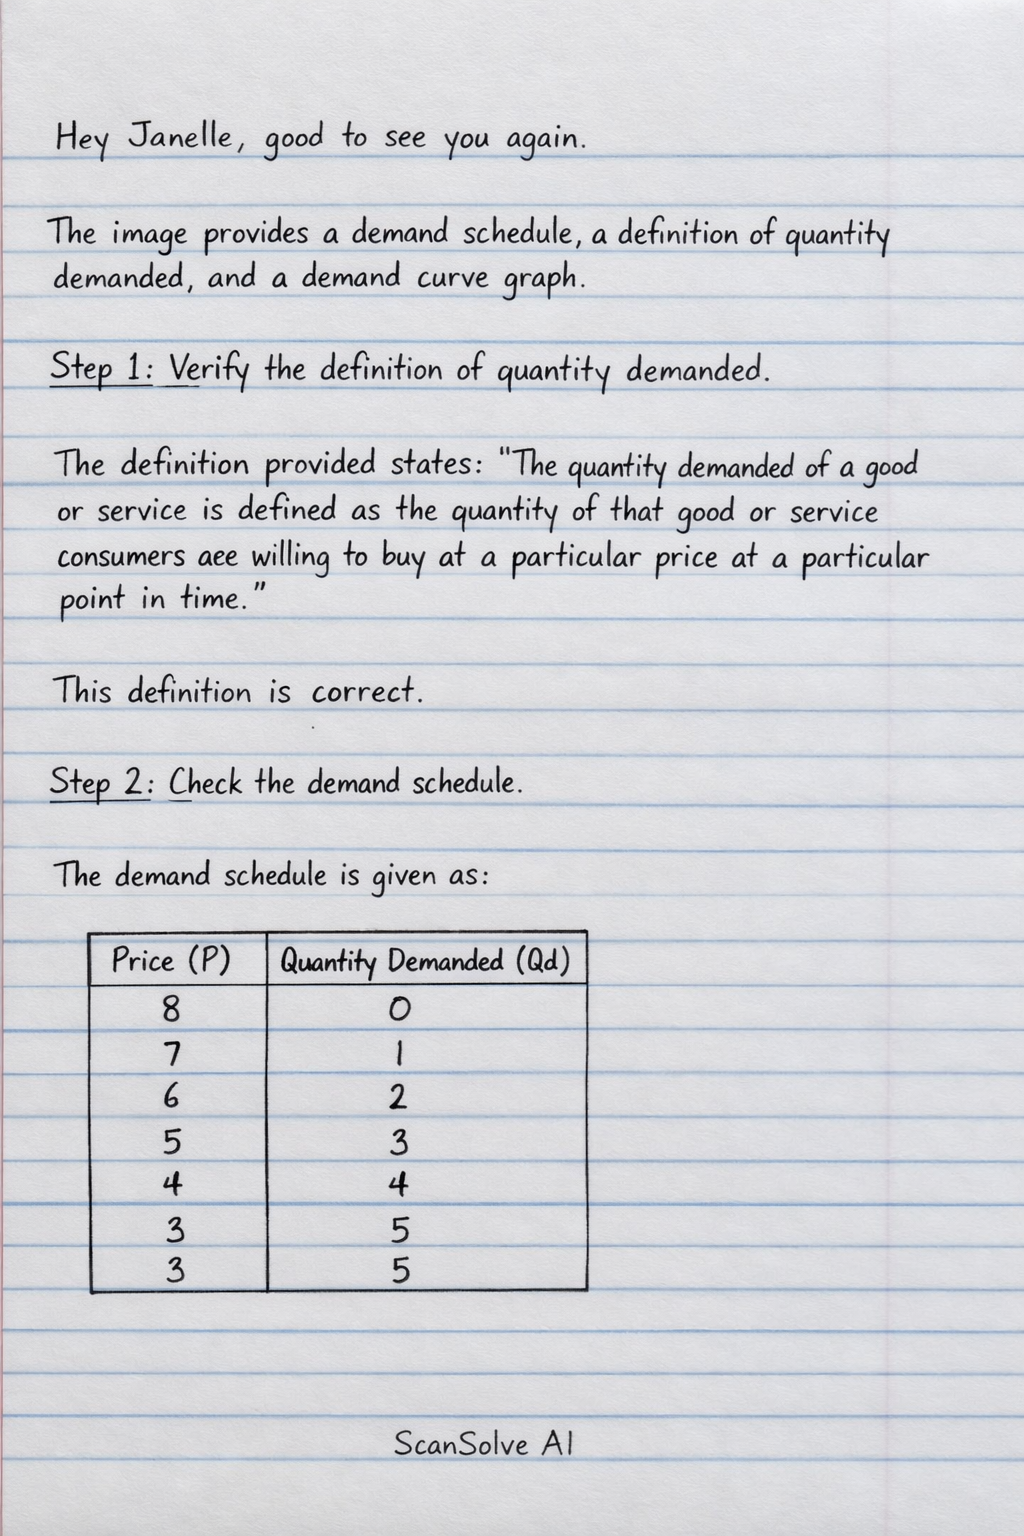 Hey Janelle, good to see you again.
The image provides a demand schedule, a definition of quantity
demanded, and a demand curve graph.
Step 1: Verify the definition of quantity demanded.
The definition provided states: "The quantity demanded of a good
or service is defined as the quantity of that good or service
consumers aee willing to buy at a particular price at a particular
point in time."
This definition is correct.
Step 2: Check the demand schedule.
The demand schedule is given as:
Price (P) Quantity Demanded (Qd)
8 0
7 1
6 2
5 3
4 4
3 5
3 5
ScanSolve AI